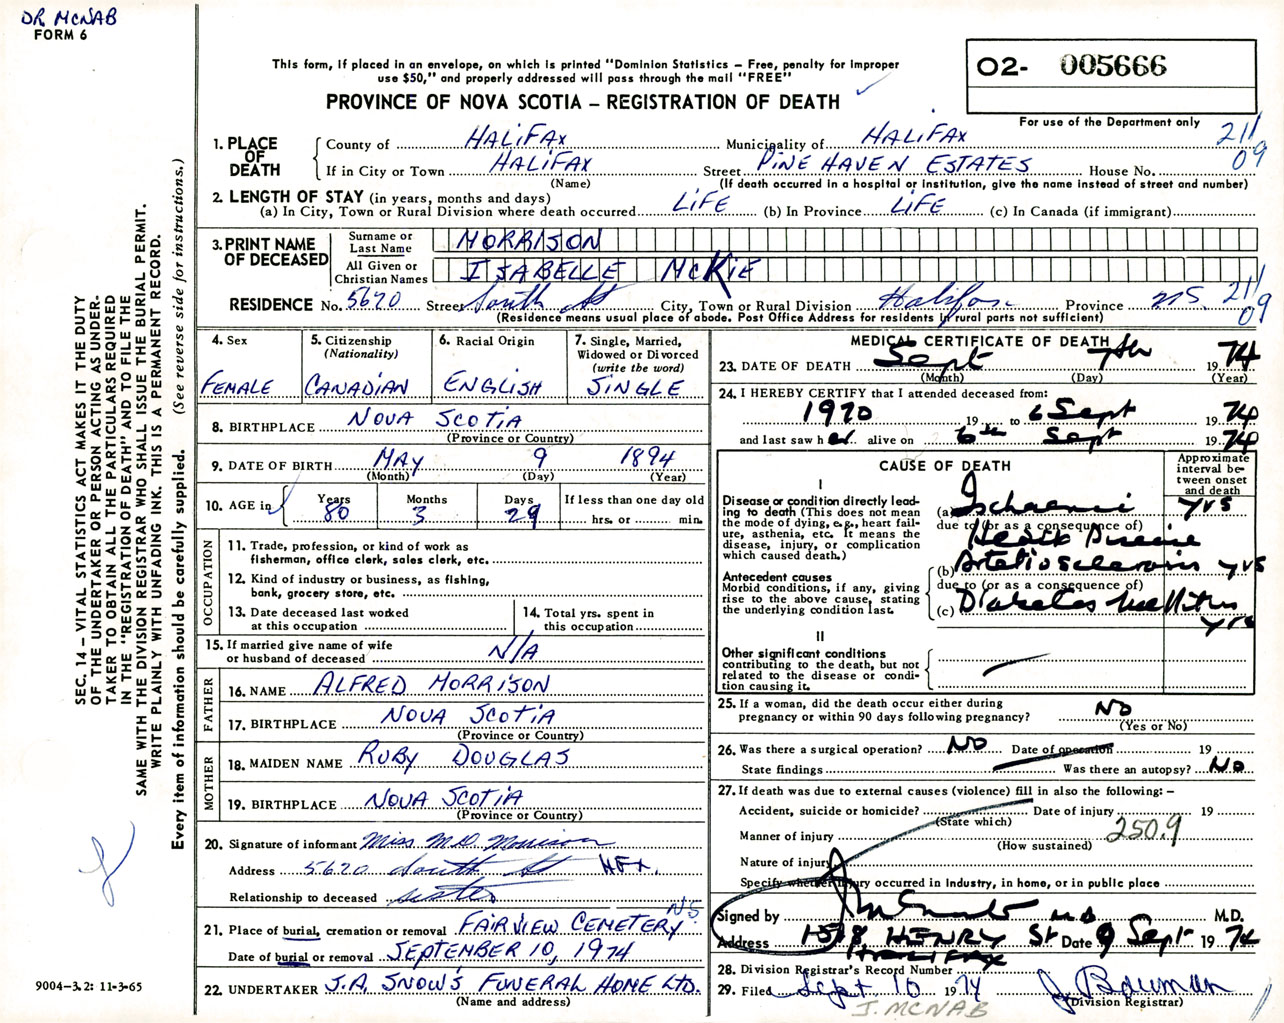 DR MCNAB
FORM 6
This form, if placed in an envelope, on which is printed "Dominion Statistics – Free, penalty for improper
use $50," and properly addressed will pass through the mail "FREE"
PROVINCE OF NOVA SCOTIA – REGISTRATION OF DEATH
O2- 005666
For use of the Department only
1. PLACE OF DEATH
County of HALIFAX Municipality of HALIFAX 211
If in City or Town HALIFAX Street PINE HAVEN ESTATES House No. 09
(Name) (If death occurred in a hospital or institution, give the name instead of street and number)
2. LENGTH OF STAY (in years, months and days)
(a) In City, Town or Rural Division where death occurred LIFE (b) In Province LIFE (c) In Canada (if immigrant)
3. PRINT NAME OF DECEASED
Surname or Last Name MORRISON
All Given or Christian Names ISABELLE MCKIE
RESIDENCE No. 5620 Street South St City, Town or Rural Division Halifax Province N.S. 211 09
(Residence means usual place of abode. Post Office Address for residents in rural parts not sufficient)
4. Sex FEMALE
5. Citizenship (Nationality) CANADIAN
6. Racial Origin ENGLISH
7. Single, Married, Widowed or Divorced (write the word) SINGLE
8. BIRTHPLACE NOVA SCOTIA
(Province or Country)
9. DATE OF BIRTH MAY 9 1894
(Month) (Day) (Year)
10. AGE in Years 80 Months 3 Days 29 If less than one day old
hrs. or min.
OCCUPATION
11. Trade, profession, or kind of work as
fisherman, office clerk, sales clerk, etc.
12. Kind of industry or business, as fishing,
bank, grocery store, etc.
13. Date deceased last worked
at this occupation
14. Total yrs. spent in
this occupation
15. If married give name of wife
or husband of deceased N/A
FATHER
16. NAME ALFRED MORRISON
17. BIRTHPLACE NOVA SCOTIA
(Province or Country)
MOTHER
18. MAIDEN NAME RUBY DOUGLAS
19. BIRTHPLACE NOVA SCOTIA
(Province or Country)
20. Signature of informant Miss M.D. Morrison
Address 5620 South St HFX.
Relationship to deceased sister
21. Place of burial, cremation or removal FAIRVIEW CEMETERY N.S.
Date of burial or removal SEPTEMBER 10, 1974
22. UNDERTAKER J.A. SNOW'S FUNERAL HOME LTD.
(Name and address)
MEDICAL CERTIFICATE OF DEATH
23. DATE OF DEATH Sept 7th 1974
(Month) (Day) (Year)
24. I HEREBY CERTIFY that I attended deceased from:
1970 19 to 6 Sept 1974
and last saw her alive on 6th Sept 1974
CAUSE OF DEATH
Approximate interval between onset and death
I
Disease or condition directly leading to death (This does not mean the mode of dying, e.g., heart failure, asthenia, etc. It means the disease, injury, or complication which caused death.)
(a) Ischaemic yrs
due to (or as a consequence of)
Heart Disease
Antecedent causes
Morbid conditions, if any, giving rise to the above cause, stating the underlying condition last.
(b) Arteriosclerosis yrs
due to (or as a consequence of)
(c) Diabetes Mellitus yrs
II
Other significant conditions
contributing to the death, but not related to the disease or condition causing it.
25. If a woman, did the death occur either during
pregnancy or within 90 days following pregnancy? NO
(Yes or No)
26. Was there a surgical operation? NO Date of operation 19
State findings Was there an autopsy? NO
27. If death was due to external causes (violence) fill in also the following: –
Accident, suicide or homicide? Date of injury 19
(State which)
Manner of injury 250.9
(How sustained)
Nature of injury
Specify whether injury occurred in Industry, in home, or in public place
Signed by M.D. M.D.
Address 1578 HENRY St Date 9 Sept 1974
HALIFAX
28. Division Registrar's Record Number
29. Filed Sept 10 1974 J. Bowman
(Division Registrar)
J. MCNAB
SEC. 14 – VITAL STATISTICS ACT MAKES IT THE DUTY
OF THE UNDERTAKER OR PERSON ACTING AS UNDER-
TAKER TO OBTAIN ALL THE PARTICULARS REQUIRED
IN THE "REGISTRATION OF DEATH" AND TO FILE THE
SAME WITH THE DIVISION REGISTRAR WHO SHALL ISSUE THE BURIAL PERMIT.
WRITE PLAINLY WITH UNFADING INK. THIS IS A PERMANENT RECORD.
Every item of information should be carefully supplied. (See reverse side for instructions.)
9004-3.2: 11-3-65